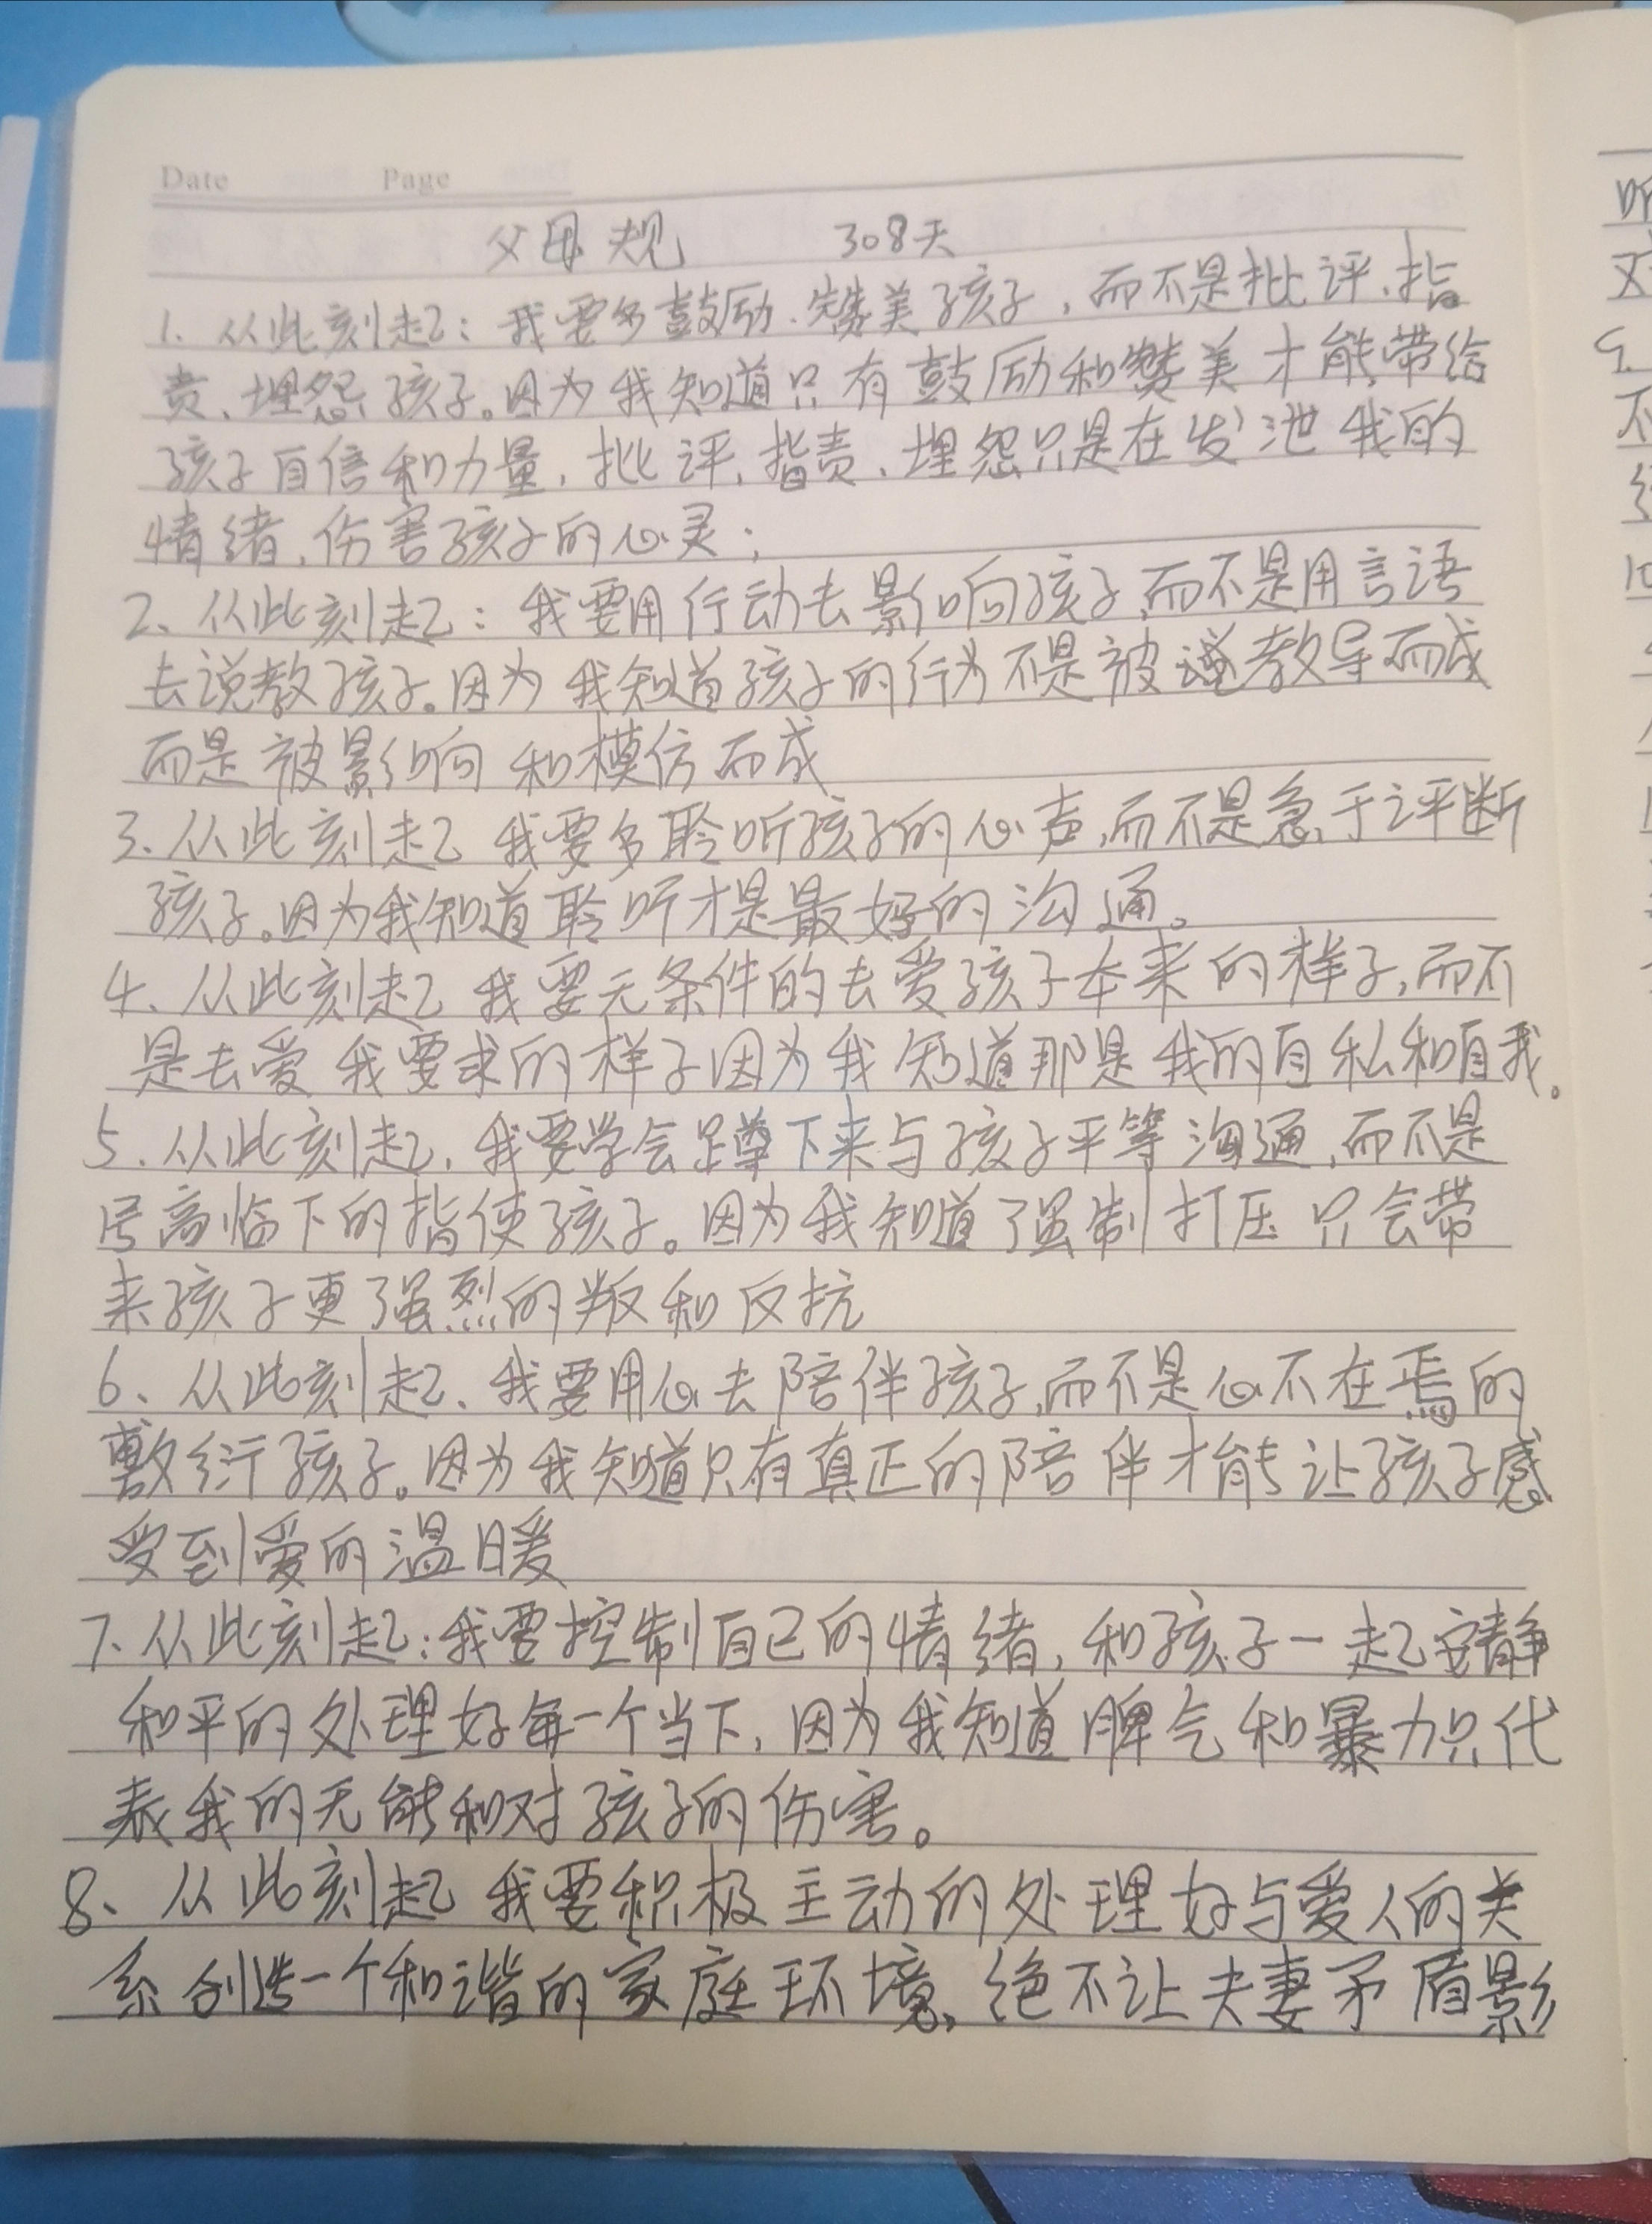 Date Page
父母规 308天
1. 从此刻起：我要多鼓励、赞美孩子，而不是批评、指
责、埋怨孩子。因为我知道只有鼓励和赞美才能带给
孩子自信和力量，批评、指责、埋怨只是在发泄我的
情绪，伤害孩子的心灵；
2、从此刻起：我要用行动去影响孩子，而不是用言语
去说教孩子。因为我知道孩子的行为不是被教导而成
而是被影响和模仿而成
3、从此刻起 我要多聆听孩子的心声，而不是急于评断
孩子。因为我知道聆听才是最好的沟通。
4、从此刻起 我要无条件的去爱孩子本来的样子，而不
是去爱我要求的样子因为我知道那是我的自私和自我。
5、从此刻起，我要学会蹲下来与孩子平等沟通，而不是
居高临下的指使孩子。因为我知道强制打压只会带
来孩子更强烈的叛和反抗
6、从此刻起、我要用心去陪伴孩子，而不是心不在焉的
敷衍孩子。因为我知道只有真正的陪伴才能让孩子感
受到爱的温暖
7、从此刻起：我要控制自己的情绪，和孩子一起安静
和平的处理好每一个当下，因为我知道脾气和暴力只代
表我的无能和对孩子的伤害。
8、从此刻起 我要积极主动的处理好与爱人的关
系创造一个和谐的家庭环境，绝不让夫妻矛盾影
听
对
9.
不
10